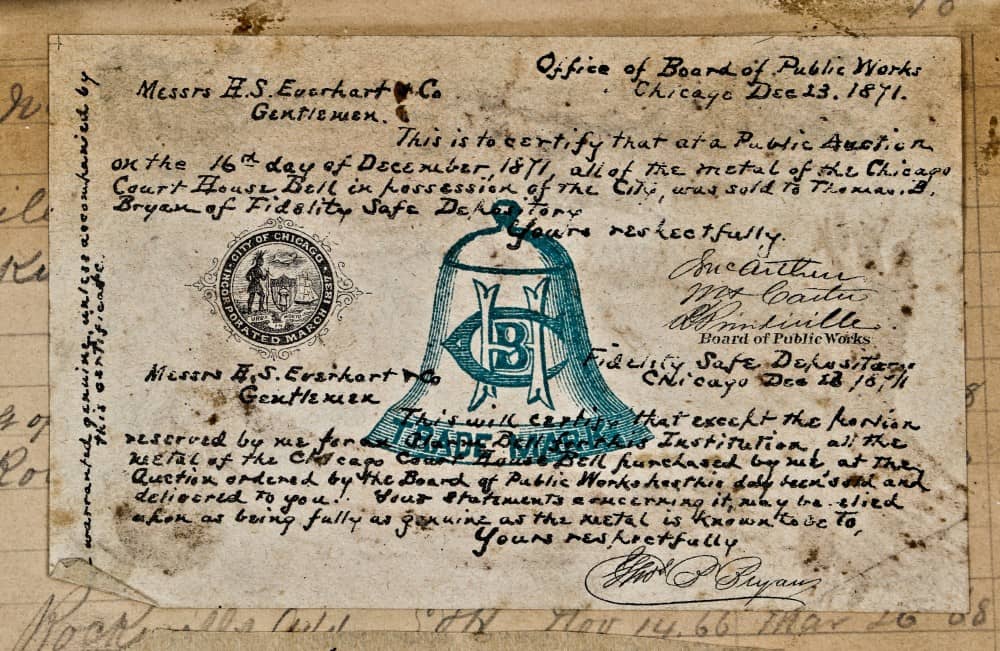 Office of Board of Public Works
Chicago Dec 23. 1871.
Messrs H.S. Everhart & Co
Gentlemen.
This is to certify that at a Public Auction
on the 16th day of December, 1871, all of the metal of the Chicago
Court House Bell in possession of the City, was sold to Thomas. B.
Bryan of Fidelity Safe Depository
Yours respectfully.
CITY OF CHICAGO
INCORPORATED MARCH
Wm Carter
Board of Public Works
CHB
TRADE MARK
Fidelity Safe Depository
Chicago Dec 1871
Messrs H.S. Everhart & Co
Gentlemen
This will certify that except the portion
reserved by me for an Alarm Bell for this Institution, all the
metal of the Chicago Court House Bell purchased by me, at the
Auction ordered by the Board of Public Works has this day been sold and
delivered to you. Your statements concerning it, may be relied
upon as being fully as genuine as the metal is known to be to,
Yours respectfully
Thos B Bryan
warranted genuine unless accompanied by
this certificate.
Nov 14. 66 Mar 26 68